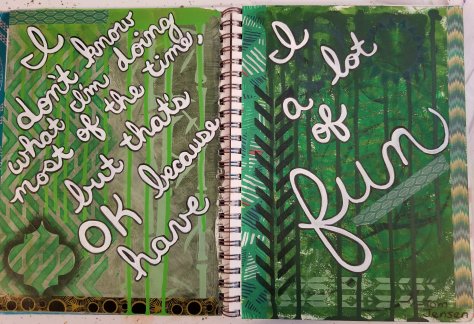 I
don't know
what I'm doing
most of the time,
but that's
OK because
have
I
a lot
of
fun
Jensen